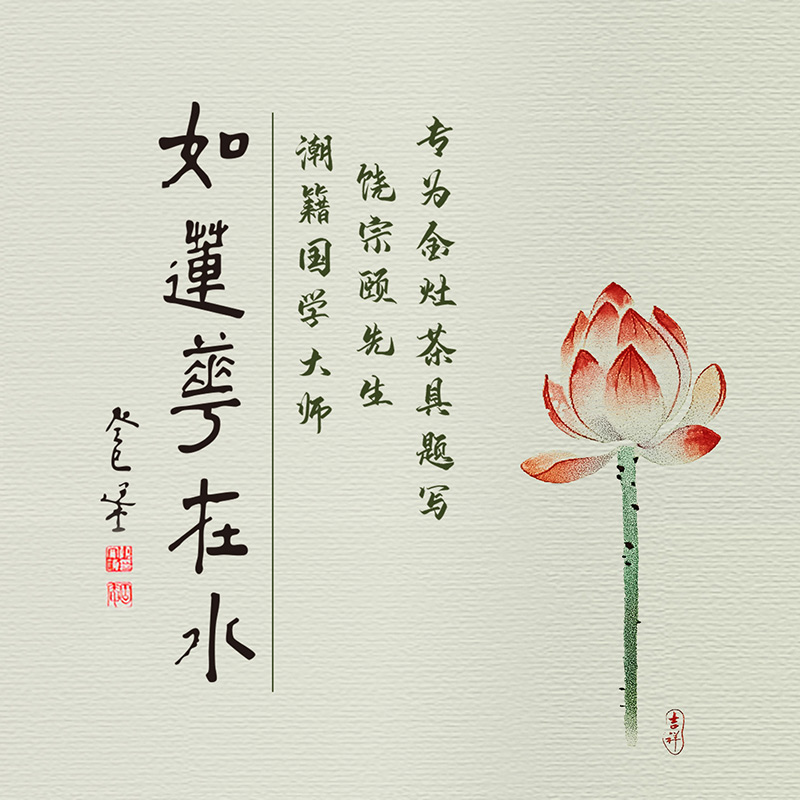 如蓮華在水
癸巳選堂
潮籍国学大师
饶宗颐先生
专为金灶茶具题写
吉祥